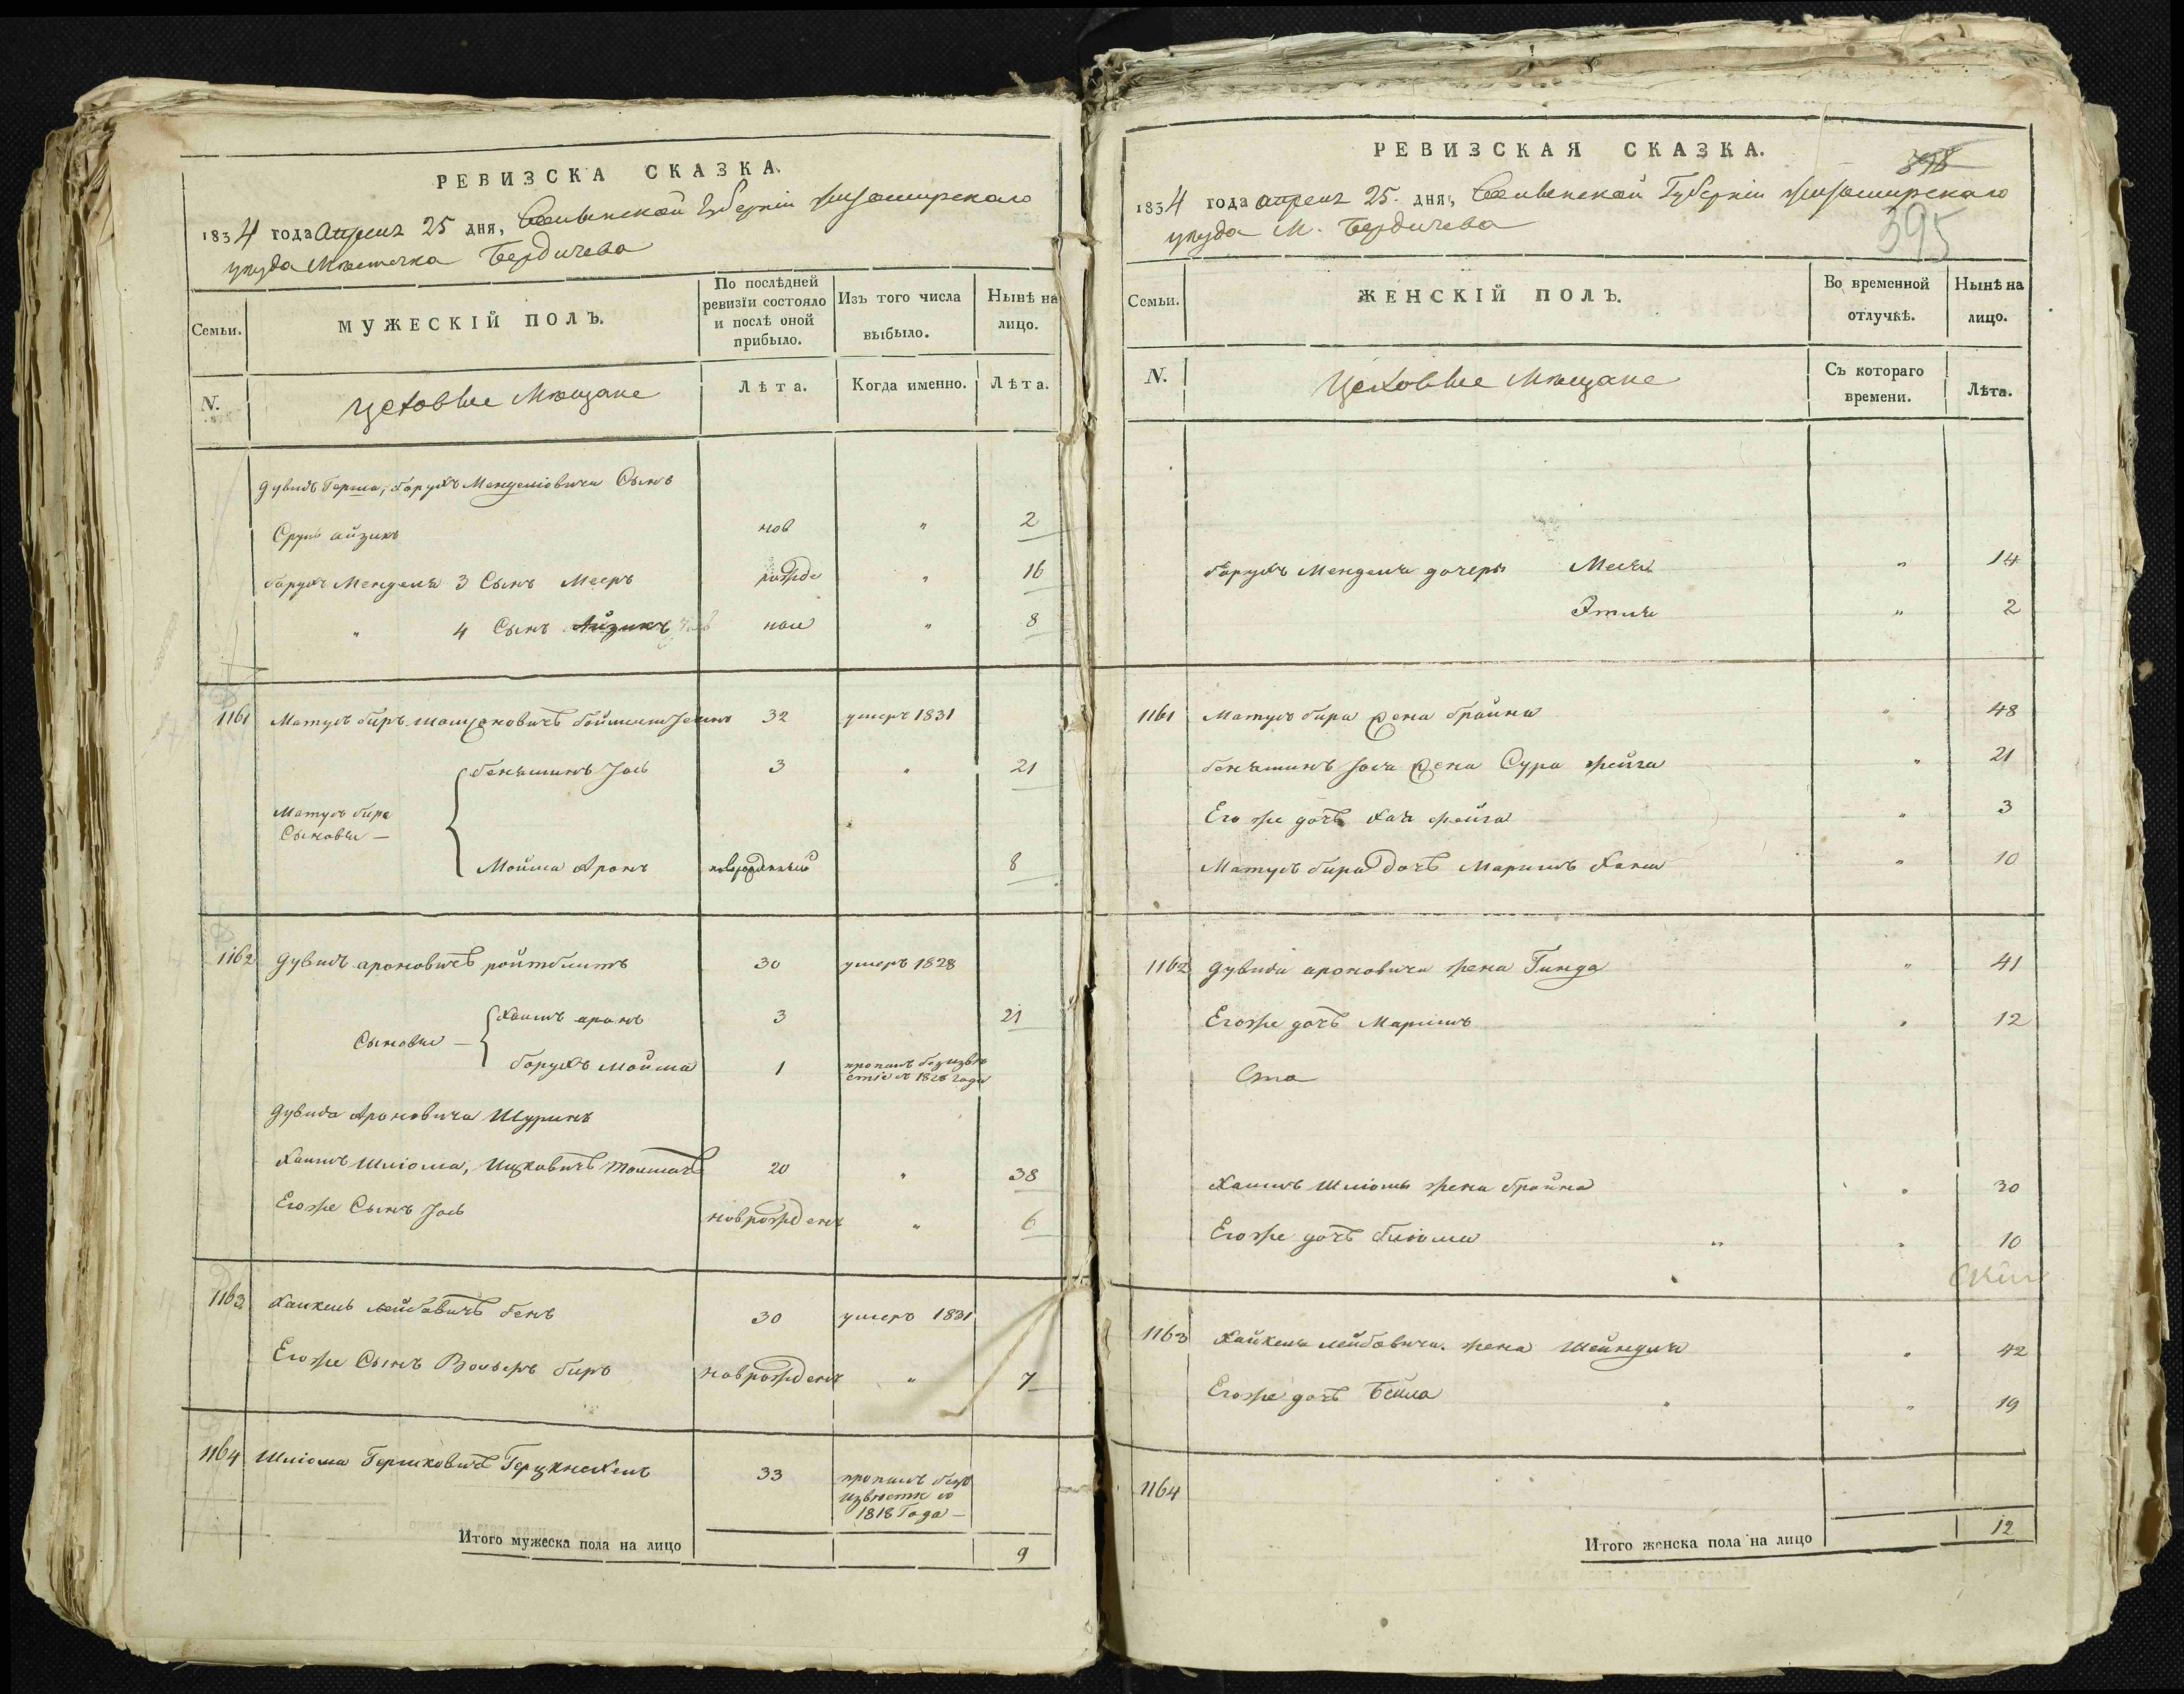 РЕВИЗСКА СКАЗКА.
1834 года Апреля 25 дня, Волынской Губернiи Житомирскаго
уезда Местечка Бердичева
Семьи.
МУЖЕСКІЙ ПОЛЪ.
По послѣдней ревизїи состояло и послѣ оной прибыло.
Изъ того числа выбыло.
Нынѣ на лицо.
N.
Цеховые Мещане
Лѣта.
Когда именно.
Лѣта.
Дувидъ Герша, борухъ Менделіовича Сынъ
Сруль айзикъ нов " 2
борухъ Менделя 3 Сынъ Мееръ рожде " 16
" 4 Сынъ Айзикъ ное " 8
1161 Матусъ биръ 32 умеръ 1831
бенъяминъ Іось 3 " 21
Матусъ бира
Сыновья —
Мойша Аронъ новорожденный 8
1162 Дувидъ ароновичъ ройтблитъ 30 умеръ 1828
Сыновья — Хаимъ аронъ 3 21
борухъ мойша 1 пропалъ безизве
стіе съ 1828 года
Дувида Ароновича Шуринъ
Хаимъ Шліома, Ицковичъ 20 " 38
Егоже Сынъ Іось новрожденъ " 6
1163 Хайкель лейбовичъ бенъ 30 умеръ 1831
Егоже Сынъ Вольфъ биръ новрожденъ " 7
1164 Шліома Гершковичъ 33 пропалъ безъ
извести съ
1818 Года —
Итого мужеска пола на лицо 9
РЕВИЗСКАЯ СКАЗКА.
398
395
1834 года апреля 25. дня, Волынской Губерніи Житомирскаго
уезда М. Бердичева
Семьи.
ЖЕНСКІЙ ПОЛЪ.
Во временной отлучкѣ.
Нынѣ на лицо.
N.
Цеховые Мещане
Съ котораго времени.
Лѣта.
борухъ Менделя дочеры Меся " 14
Этля " 2
1161 Матусъ бира жена брайна " 48
бенъяминъ Іося жена Сура фейга " 21
Его же дочъ Хая фейга " 3
Матусъ бира дочъ Маримъ Хана " 10
1162 Дувида ароновича жена Гинда " 41
Егоже дочъ Маримъ " 12
Хаимъ Шліомы жена брайна " 30
Егоже дочъ блюма " " 10
1163 Хайкеля лейбовича. жена Шейндля " 42
Егоже дочъ Бейла " " 19
1164
Итого женска пола на лицо 12